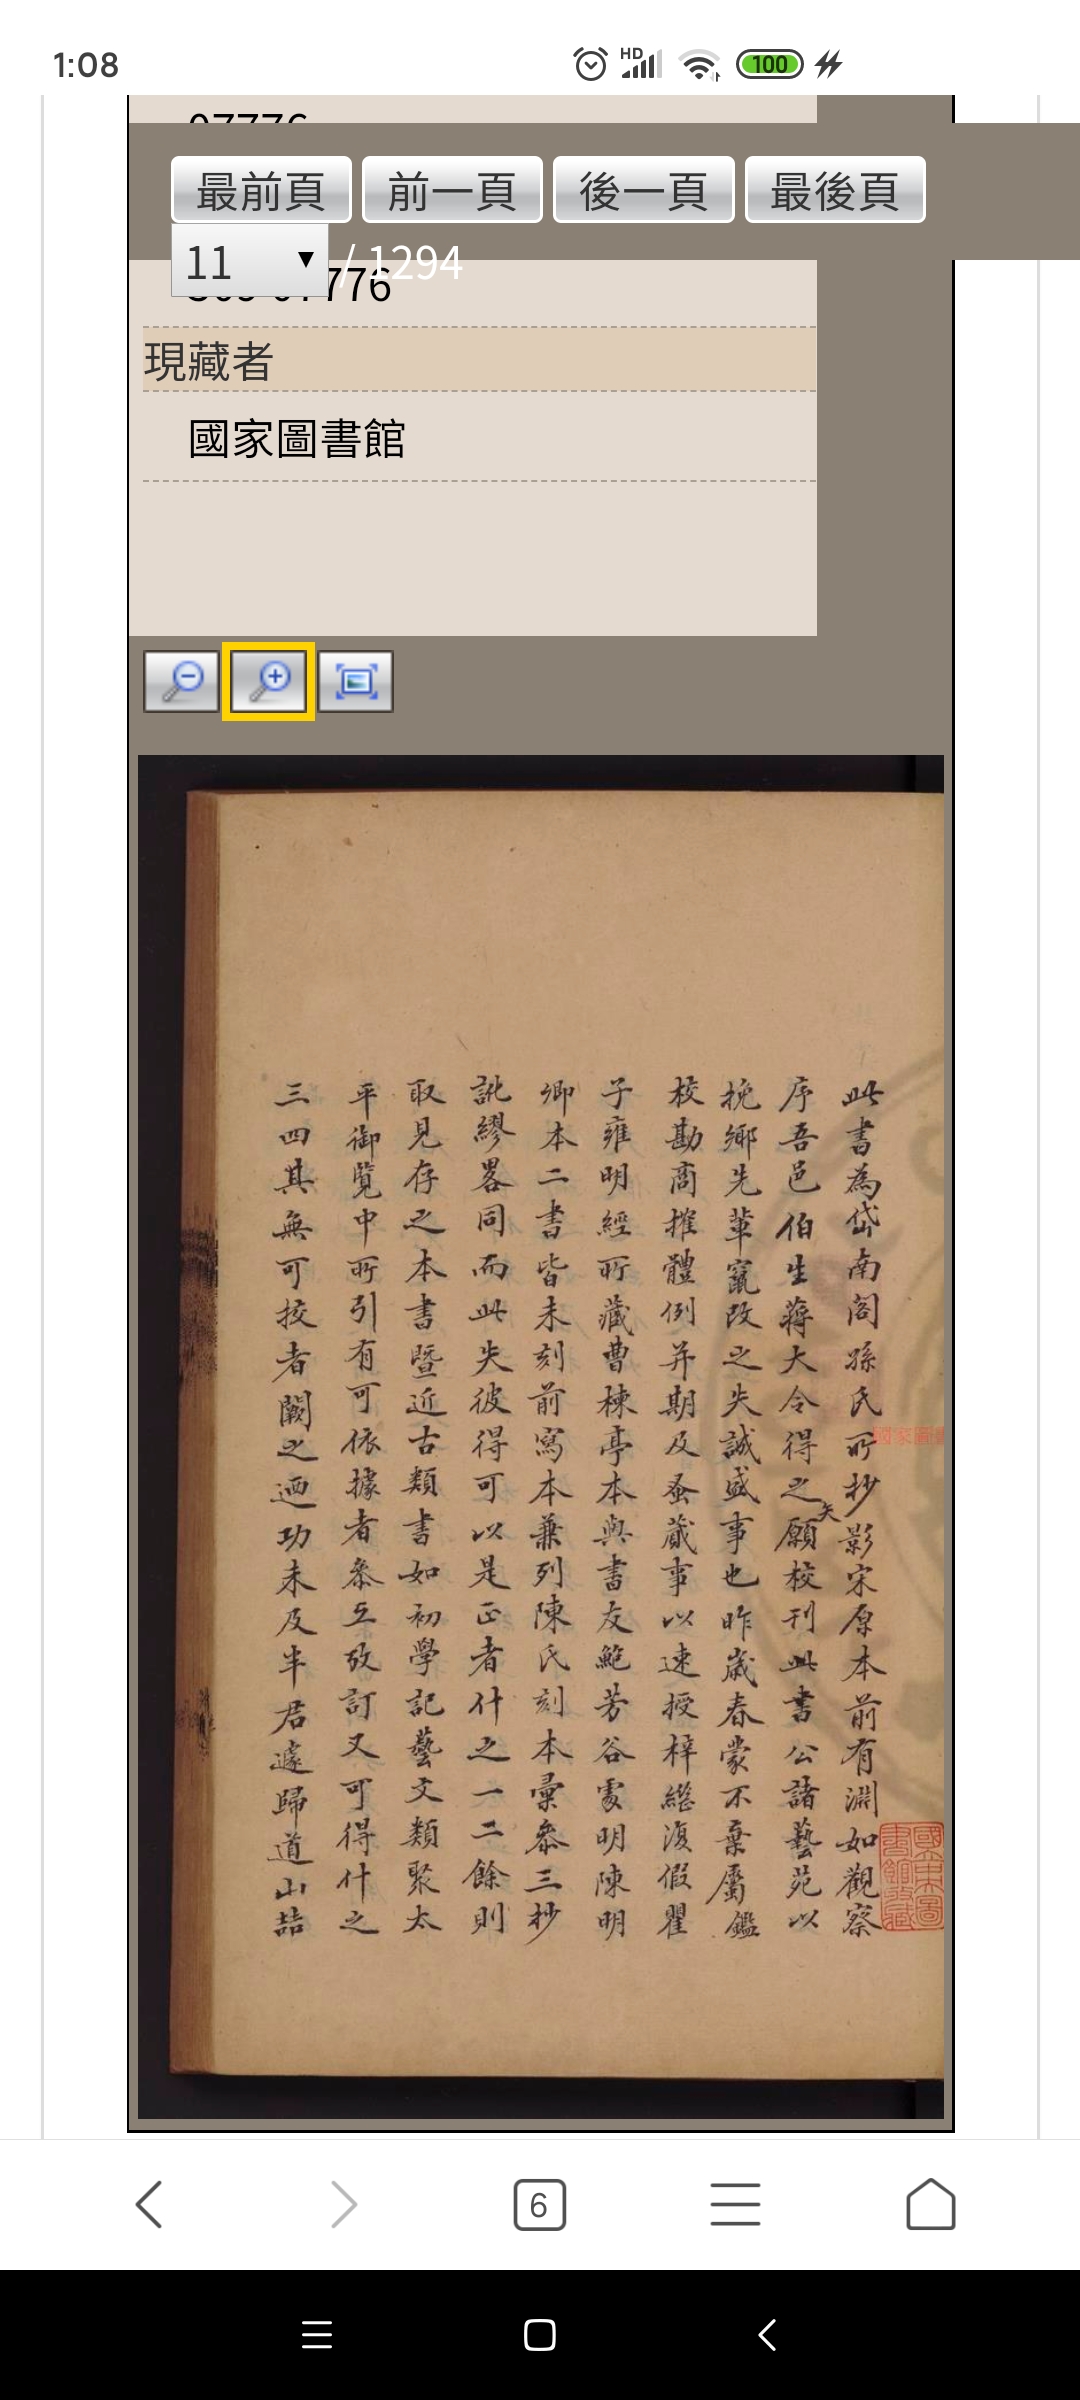 1:08
HD
100
07776
最前頁 前一頁 後一頁 最後頁
11 / 1294
07776
現藏者
國家圖書館
此書為岱南閣孫氏所抄影宋原本前有淵如觀察
序吾邑伯生蔣大令得之矢願校刊此書公諸藝苑以
挽鄉先輩竄改之失誠盛事也昨歲春蒙不棄屬鑑
校勘商搉體例并期及蚤蕆事以速授梓繼復假瞿
子雍明經所藏曹楝亭本與書友鮑芳谷處明陳明
卿本二書皆未刻前寫本兼列陳氏刻本彙叅三抄
訛繆畧同而此失彼得可以是正者什之一二餘則
取見存之本書暨近古類書如初學記藝文類聚太
平御覧中所引有可依據者叅互攷訂又可得什之
三四其無可挍者闕之迺功未及半君遽歸道山喆
國家圖書
國家圖書館收藏
6